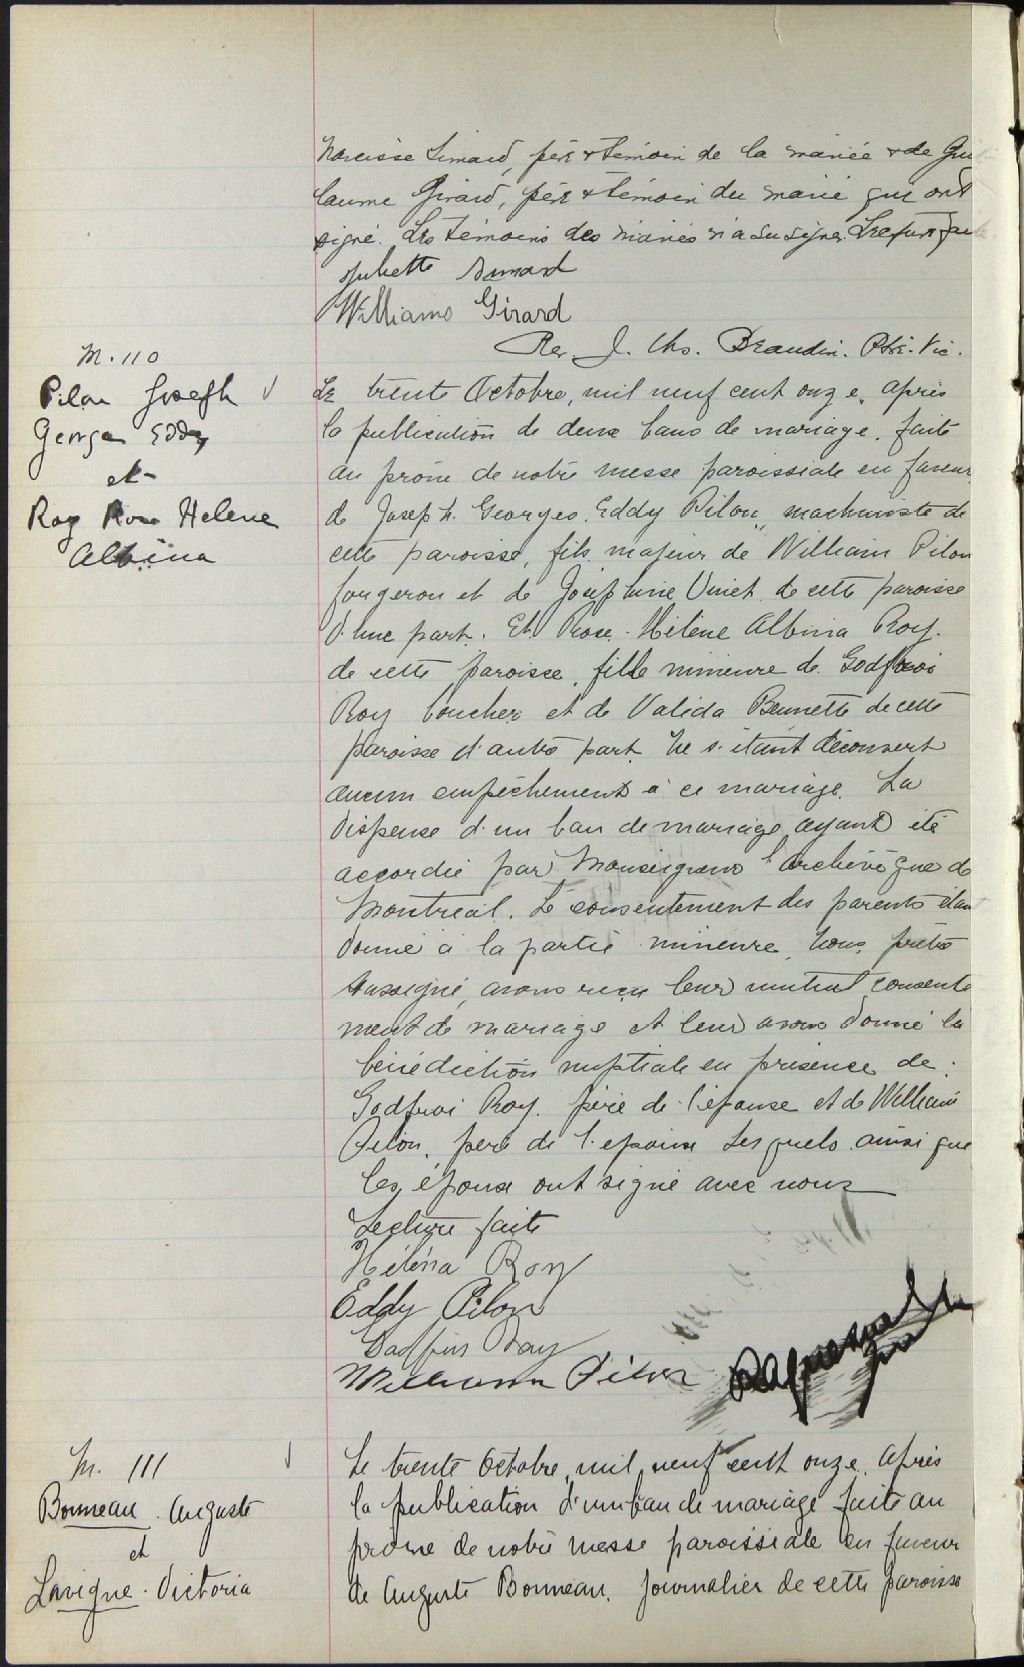 Narcisse Simard, père & témoin de la mariée & de Gui
laume Girard, père & témoin du marié qui ont
signé. Les témoins des mariés n'a su signer. Lecture faite
Juliette Simard
Williams Girard
Rev. J. Chs. Beaudin. Ptre. Vic.
M. 110
Pilon Joseph
Georges Eddy
et
Roy Rose Helene
Albina
Le trente Octobre, mil neuf cent onze, après
la publication de deux bans de mariage, faite
au prône de notre messe paroissiale en faveur
de Joseph. Georges. Eddy Pilon, machiniste de
cette paroisse, fils majeur de William Pilon
forgeron et de Josephine Vinet de cette paroisse
d'une part. Et Rose-Hélène Albina Roy.
de cette paroisse, fille mineure de Godfroi
Roy boucher et de Valida Brunette de cette
paroisse d'autre part. Ne s'étant découvert
aucun empêchement à ce mariage. La
dispense d'un ban de mariage ayant été
accordée par Monseigneur l'archevêque de
Montréal. Le consentement des parents étant
donné à la partie mineure, Nous, prêtre
soussigné, avons reçu leur mutuel consente
ment de mariage et leur avons donné la
bénédiction nuptiale en présence de:
Godfroi Roy. père de l'épouse et de William
Pilon, père de l'époux Lesquels ainsi que
les époux ont signé avec nous
Lecture faite
Héléna Roy
Eddy Pilon
Godfrois Roy
William Pilon
M. 111
Bonneau. Auguste
et
Lavigne. Victoria
Le trente Octobre, mil neuf cent onze, après
la publication d'un ban de mariage faite au
prône de notre messe paroissiale en faveur
de Auguste Bonneau, journalier de cette paroisse